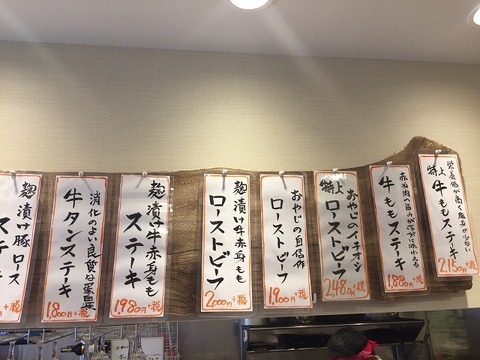 栄養価が高く脂身が少ない
特上 牛ももステーキ
2,150円+税
赤身肉の旨みが存分に味わえる
牛ももステーキ
1,880円+税
おやじのイチオシ
特上 ローストビーフ
2,480円+税
おやじの自信作
ローストビーフ
1,900円+税
麹漬け牛赤身もも
ローストビーフ
2,000円+税
麹漬け牛赤身もも
ステーキ
1,980円+税
消化のよい良質な蛋白
牛タンステーキ
1,800円+税
麹漬け豚ロース
ステ
円+税